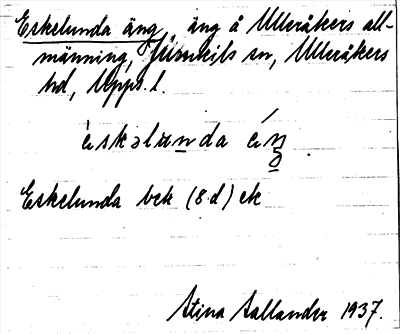 Eskelunda äng, äng å Ulleråkers all-
männing, Jumkils sn, Ulleråkers
hd, Upps. l.
èskəlunda éŋ
Eskelunda bek (8 d) ek
Stina Sallander 1937.